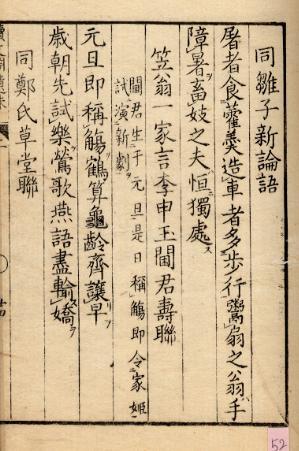 同雛子新論語
屠者食藿羹造車者多步行鬻扇之翁手
障暑畜妓之夫恒獨處
笠翁一家言李申玉閫君壽聯
閫君生于元旦是日稱觴即令家姬
試演新劇
元旦即稱觴鶴算龜齡齊讓早
歲朝先試樂鶯歌燕語盡輸嬌
同鄭氏草堂聯
52